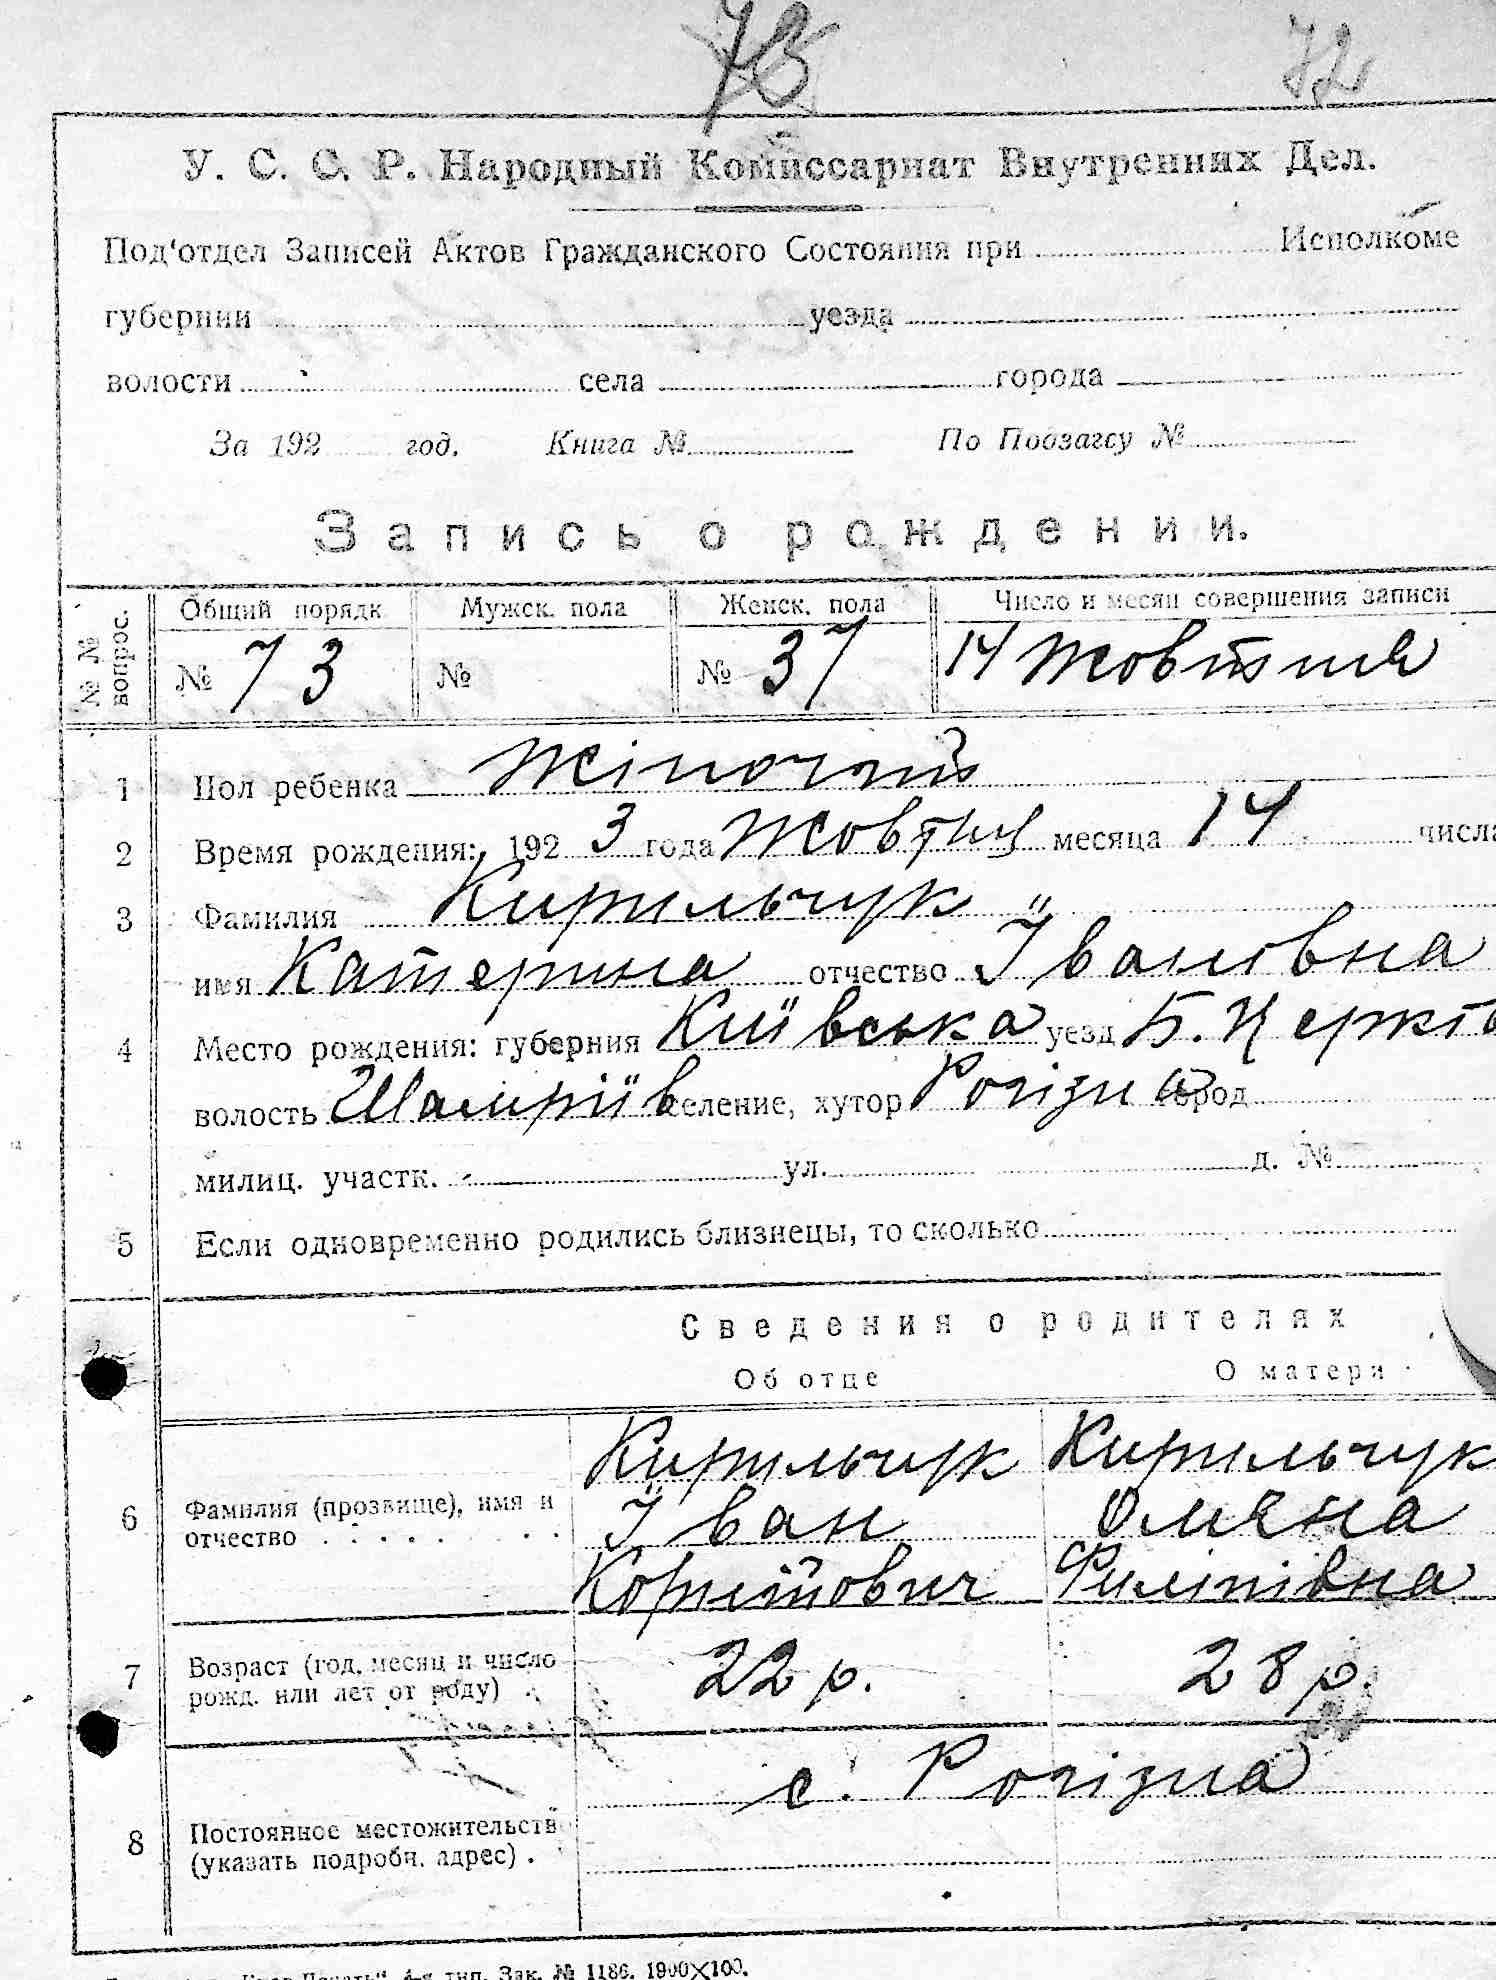 73 72
У. С. С. Р. Народный Комиссариат Внутренних Дел.
Под'отдел Записей Актов Гражданского Состояния при Исполкоме
губернии уезда
волости села города
За 192 год. Книга № По Подзагсу №
Запись о рождении.
№ № вопрос. Общий порядк. Мужск. пола Женск. пола Число и месяц совершения записи
№ 73 № № 37 14 Жовтня
1 Пол ребенка Жіночий
2 Время рождения: 192 3 года Жовтня месяца 14 числа
3 Фамилия Кирильчук
имя Катерина отчество Ївановна
4 Место рождения: губерния Київська уезд Б. Церків
волость Шамрїїв селение, хутор Розізна город
милиц. участк. ул. д. №
5 Если одновременно родились близнецы, то сколько
Сведения о родителях
Об отце О матери
Кирильчук Кирильчук
6 Фамилия (прозвище), имя и Їван Омяна
отчество Корнійович Филипівна
7 Возраст (год, месяц и число 22 р. 28 р.
рожд. или лет от роду)
с. Розізна
8 Постоянное местожительств
(указать подробн. адрес) .
Печать" 4-я тип. Зак. № 1186. 1900×100.